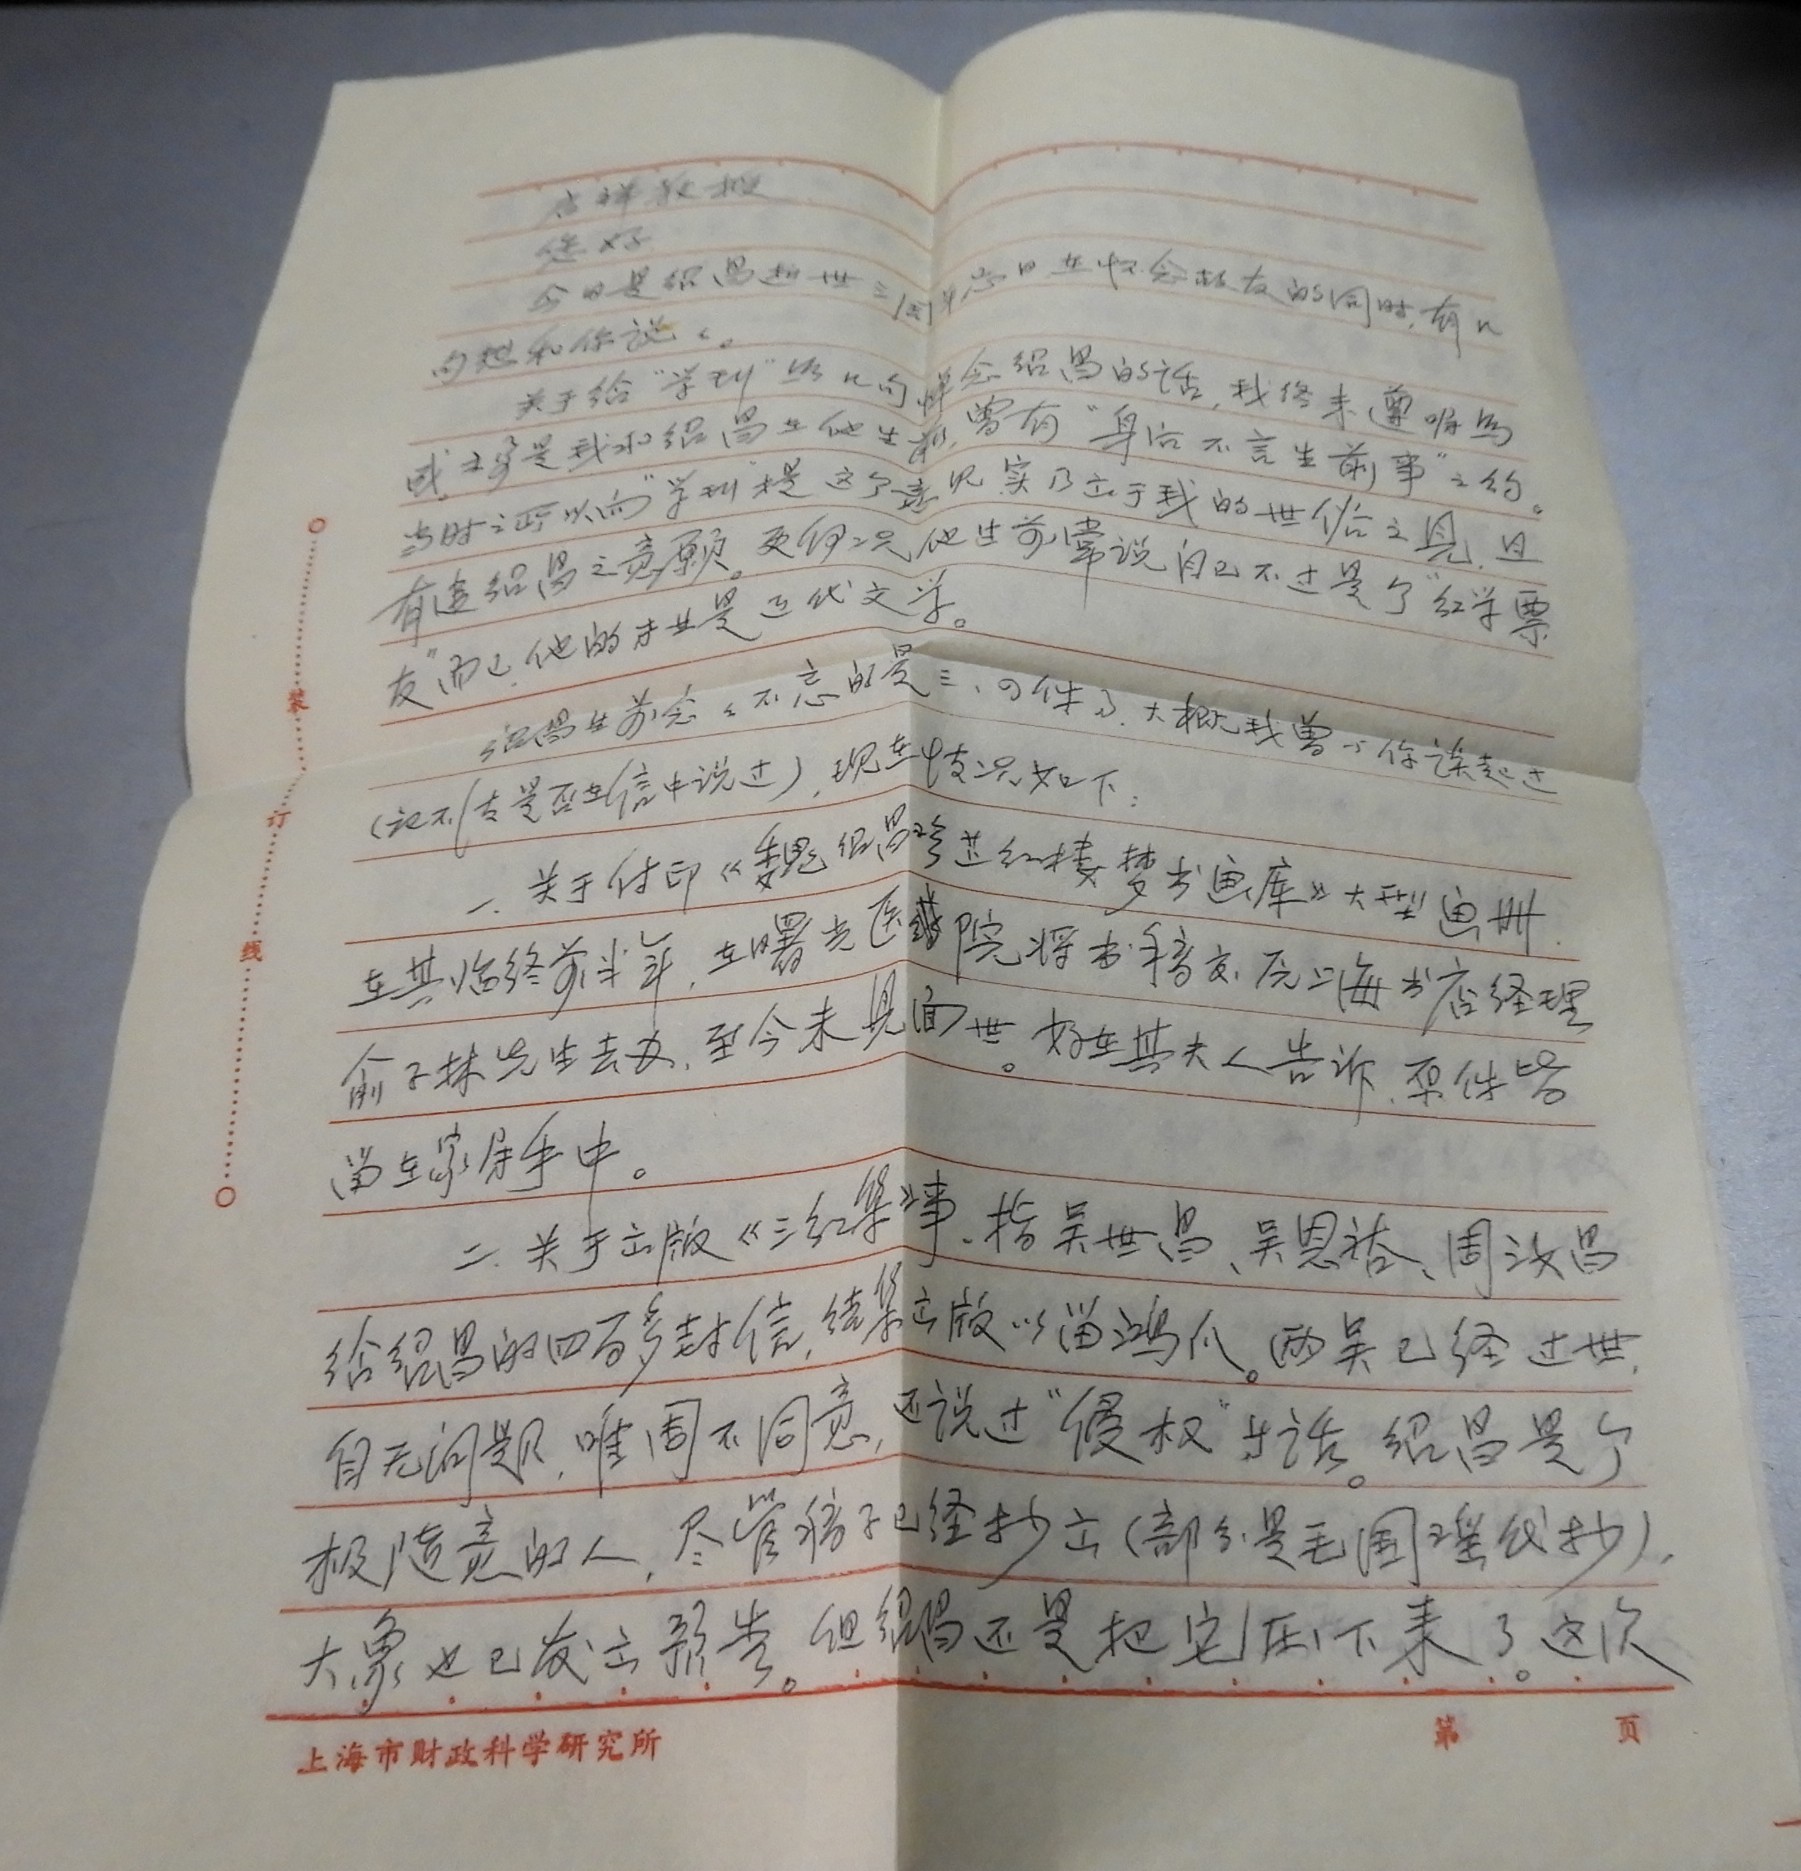 教授
您好
今日是绍昌逝世三周年忌日在怀念故友的同时，有几
句想和你说说。
关于给“学刊”写几句悼念绍昌的话，我终未遵嘱写
成主要是我和绍昌在他生前，曾有“身后不言生前事”之约。
当时之所以向“学刊”提这个意见，实乃出于我的世俗之见，且
有违绍昌之意愿。更何况他生前常说自己不过是个“红学票
友”而已，他的专业是近代文学。
绍昌生前念念不忘的是三、四件事，大概我曾与你谈起过
（记不清是否在信中说过），现在情况如下：
一、关于付印《魏绍昌珍藏红楼梦书画库》大型画册，
在其临终前半年，在曙光医院将书稿交原上海书店经理
俞子林先生去办，至今未见面世。好在其夫人告诉，原件皆
留在家属手中。
二、关于出版《三红集》事，指吴世昌、吴恩裕、周汝昌
给绍昌的四百多封信，结集出版以留鸿爪。两吴已经过世，
自无问题，唯周不同意，还说过“侵权”等话。绍昌是个
极随意的人，尽管稿子已经抄出（部分是毛国瑶代抄），
大象也已发出预告。但绍昌还是把它压下来了。这次
装订线
上海市财政科学研究所
第 页